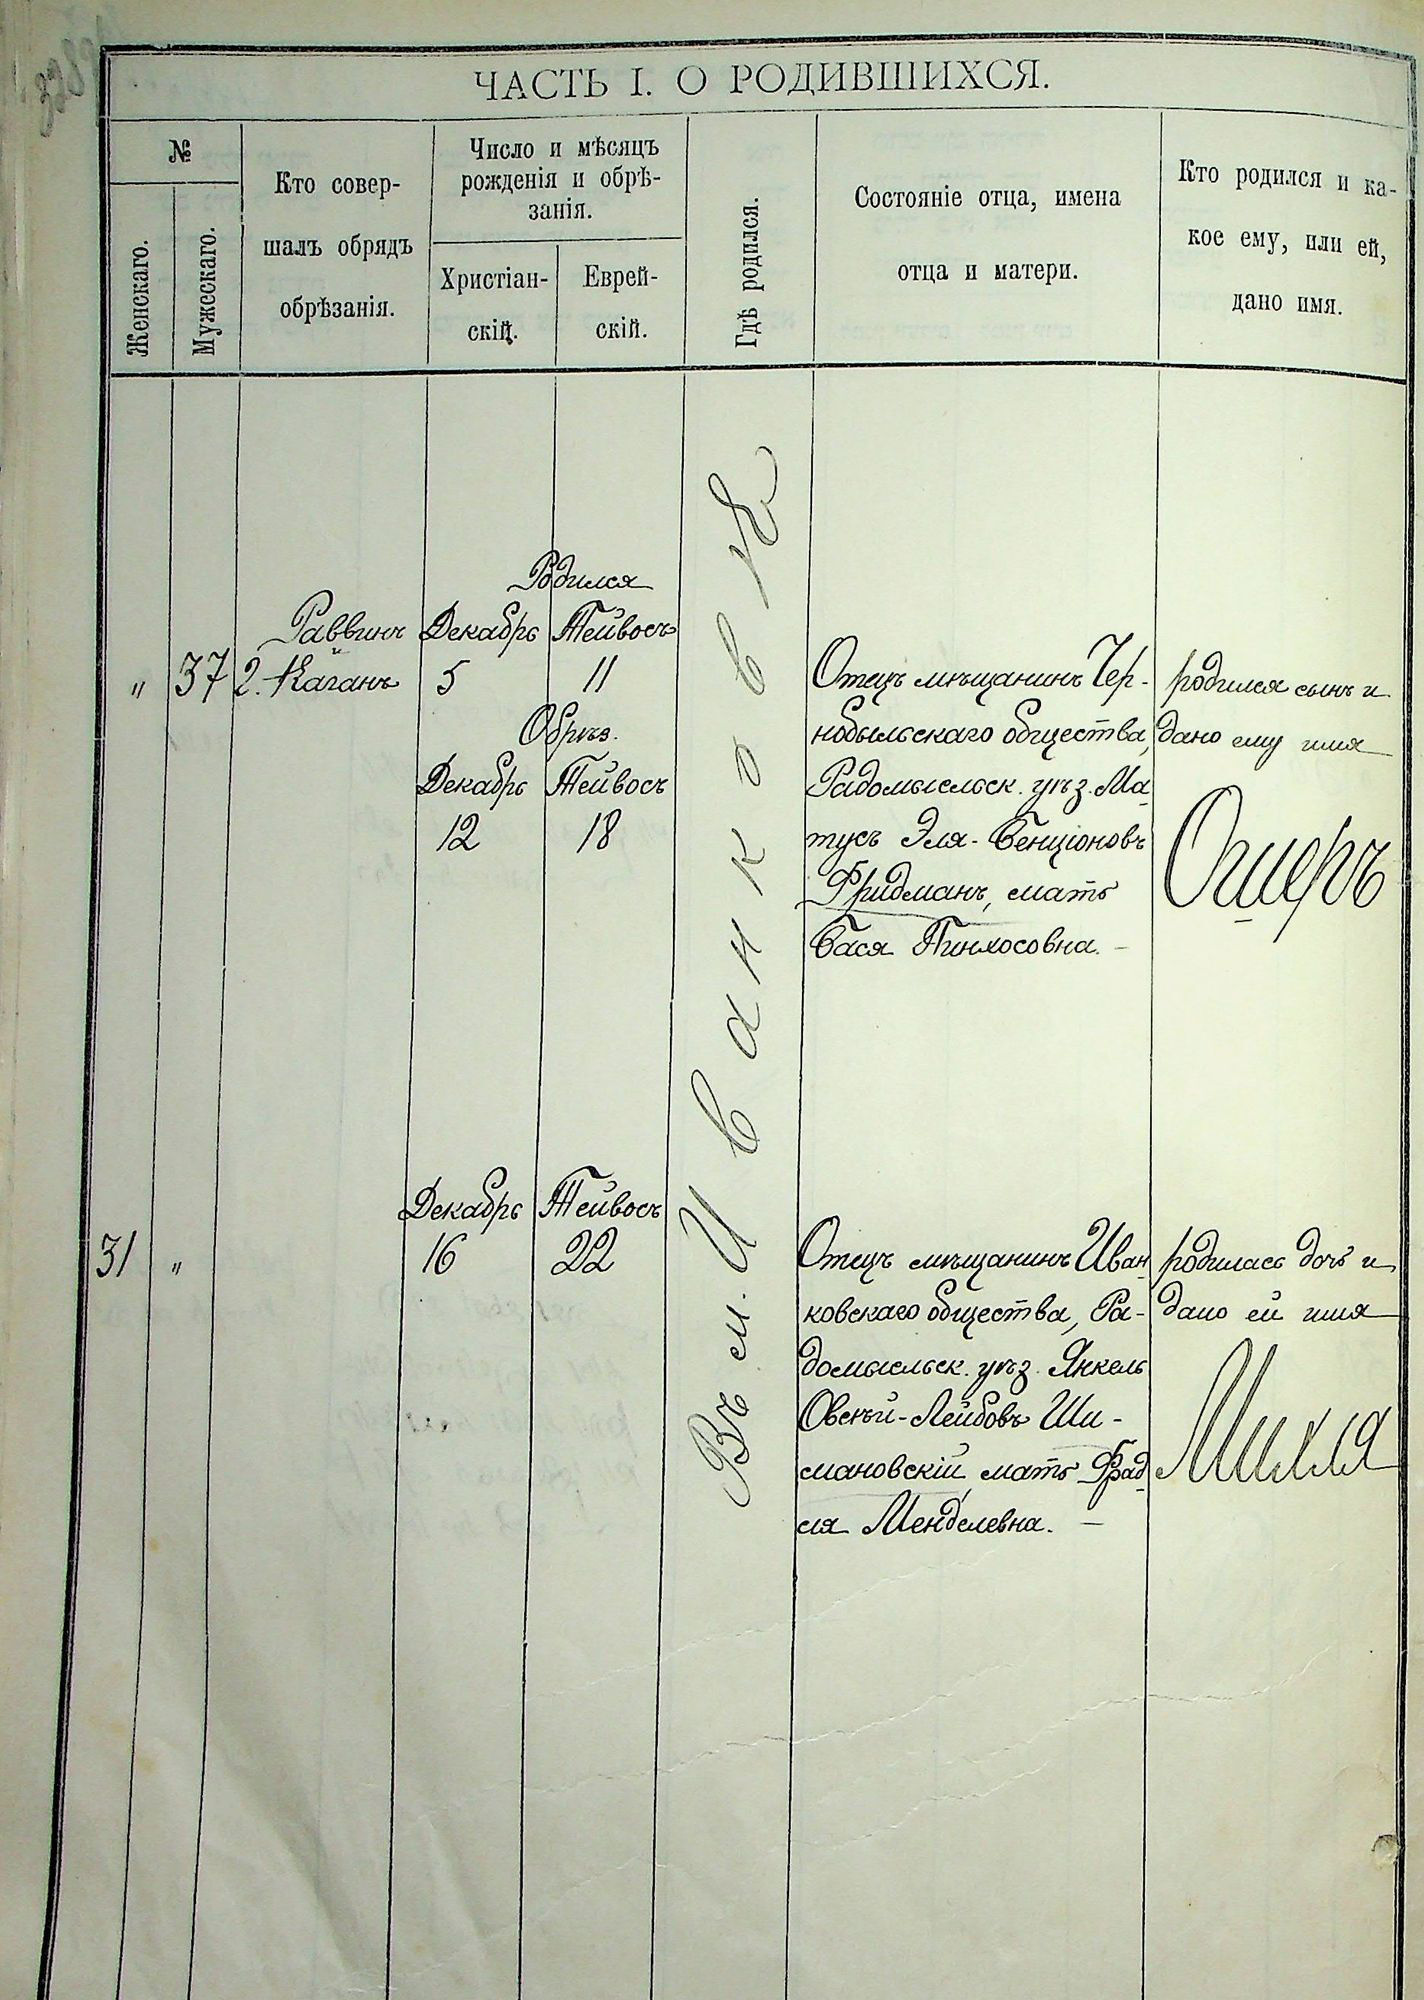 ЧАСТЬ I. О РОДИВШИХСЯ.
№
Женскаго.
Мужескаго.
Кто совер-
шалъ обрядъ
обрѣзанія.
Число и мѣсяцъ
рожденія и обрѣ-
занія.
Христіан-
скій.
Еврей-
скій.
Гдѣ родился.
Состояніе отца, имена
отца и матери.
Кто родился и ка-
кое ему, или ей,
дано имя.
Въ м. Иванковѣ
Родился
Раввинъ Декабрь Тейвосъ
" 37 г. Каганъ 5 11
Обрѣз.
Декабрь Тейвосъ
12 18
Отецъ мѣщанинъ Чер-
нобыльскаго общества,
Радомысльск. уѣз. Ма-
тусъ Эля-Бенціоновъ
Фридманъ, мать
Бася Пинхосовна. —
родился сынъ и
дано ему имя
Ошеръ
Декабрь Тейвосъ
31 " 16 22
Отецъ мѣщанинъ Иван-
ковскаго общества, Ра-
домысльск. уѣз. Янкель
Овсѣй-Лейбовъ Ши-
мановскій, мать Фрад-
ля Менделевна. —
родилась дочь и
дано ей имя
Михля